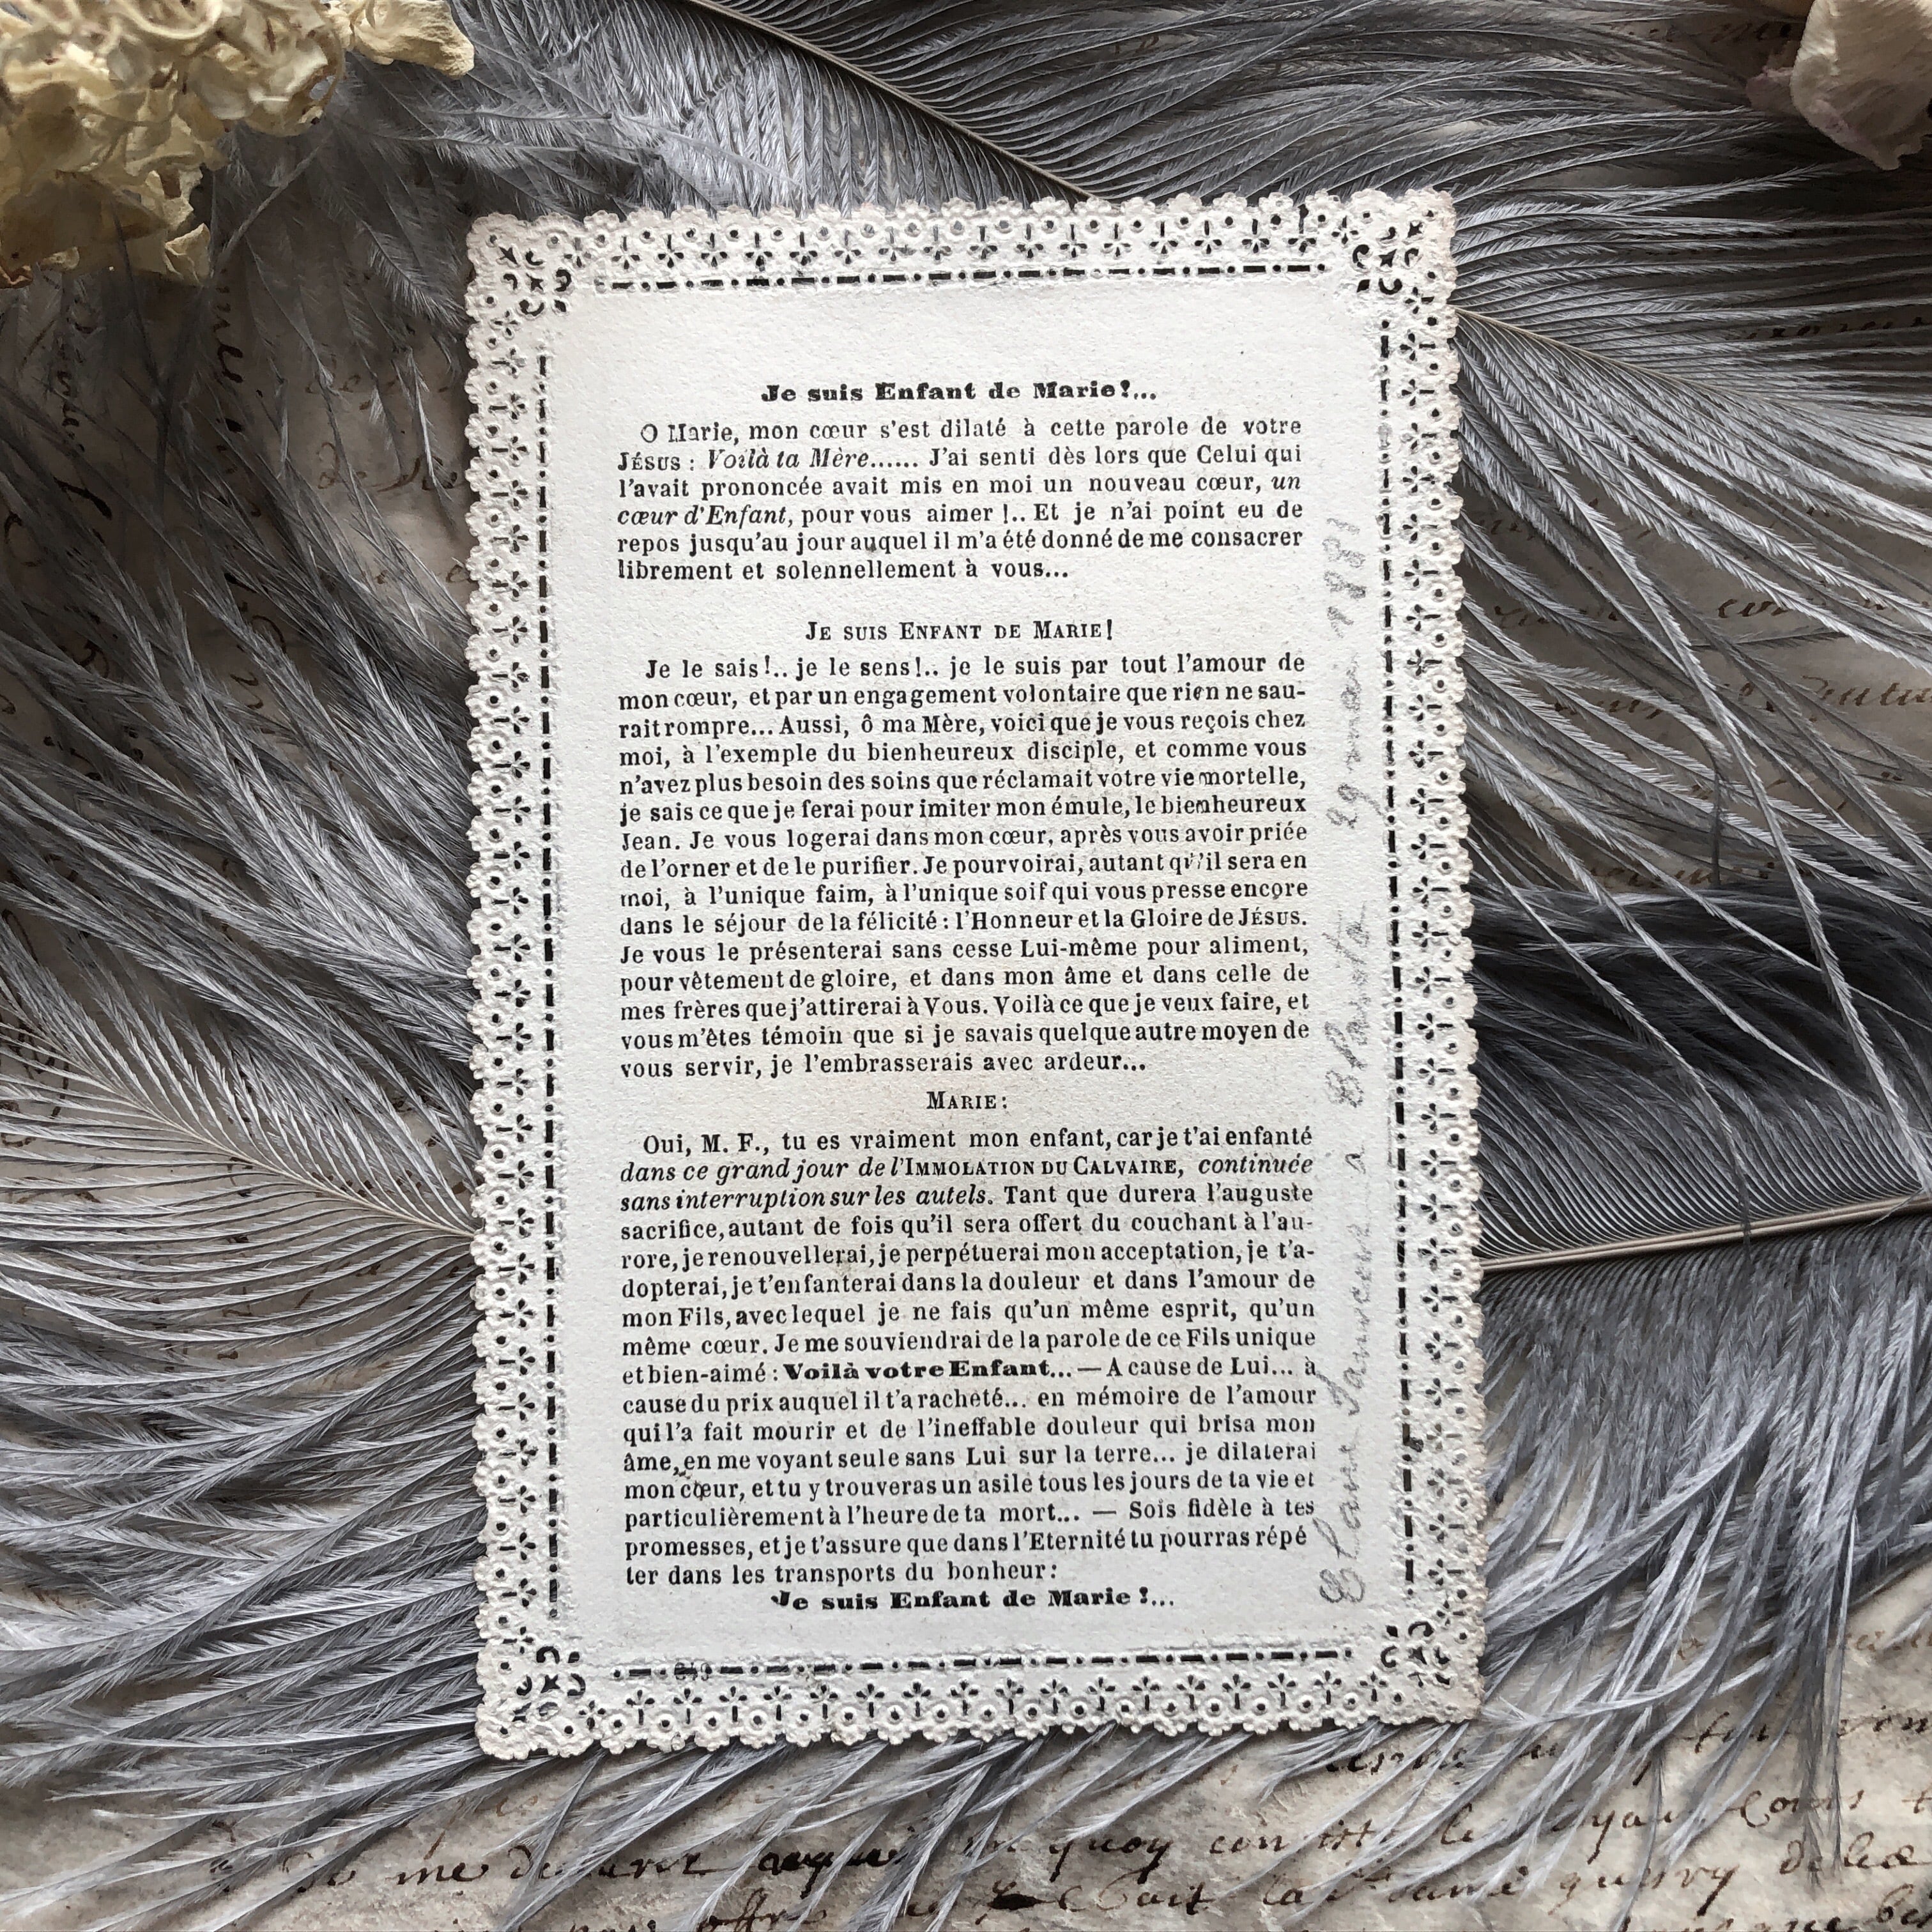 Je suis Enfant de Marie!...
O Marie, mon cœur s'est dilaté à cette parole de votre
JÉSUS : Voilà ta Mère...... J'ai senti dès lors que Celui qui
l'avait prononcée avait mis en moi un nouveau cœur, un
cœur d'Enfant, pour vous aimer !.. Et je n'ai point eu de
repos jusqu'au jour auquel il m'a été donné de me consacrer
librement et solennellement à vous...
JE SUIS ENFANT DE MARIE!
Je le sais!.. je le sens!.. je le suis par tout l'amour de
mon cœur, et par un engagement volontaire que rien ne sau-
rait rompre... Aussi, ô ma Mère, voici que je vous reçois chez
moi, à l'exemple du bienheureux disciple, et comme vous
n'avez plus besoin des soins que réclamait votre vie mortelle,
je sais ce que je ferai pour imiter mon émule, le bienheureux
Jean. Je vous logerai dans mon cœur, après vous avoir priée
de l'orner et de le purifier. Je pourvoirai, autant qu'il sera en
moi, à l'unique faim, à l'unique soif qui vous presse encore
dans le séjour de la félicité : l'Honneur et la Gloire de JÉSUS.
Je vous le présenterai sans cesse Lui-même pour aliment,
pour vêtement de gloire, et dans mon âme et dans celle de
mes frères que j'attirerai à Vous. Voilà ce que je veux faire, et
vous m'êtes témoin que si je savais quelque autre moyen de
vous servir, je l'embrasserais avec ardeur...
MARIE:
Oui, M. F., tu es vraiment mon enfant, car je t'ai enfanté
dans ce grand jour de l'IMMOLATION DU CALVAIRE, continuée
sans interruption sur les autels. Tant que durera l'auguste
sacrifice, autant de fois qu'il sera offert du couchant à l'au-
rore, je renouvellerai, je perpétuerai mon acceptation, je t'a-
dopterai, je t'enfanterai dans la douleur et dans l'amour de
mon Fils, avec lequel je ne fais qu'un même esprit, qu'un
même cœur. Je me souviendrai de la parole de ce Fils unique
et bien-aimé : Voilà votre Enfant... — A cause de Lui... à
cause du prix auquel il t'a racheté... en mémoire de l'amour
qui l'a fait mourir et de l'ineffable douleur qui brisa mon
âme, en me voyant seule sans Lui sur la terre... je dilaterai
mon cœur, et tu y trouveras un asile tous les jours de ta vie et
particulièrement à l'heure de ta mort... — Sois fidèle à tes
promesses, et je t'assure que dans l'Eternité tu pourras répé
ter dans les transports du bonheur:
Je suis Enfant de Marie !...
29 mai 188
quoy con le
la dame